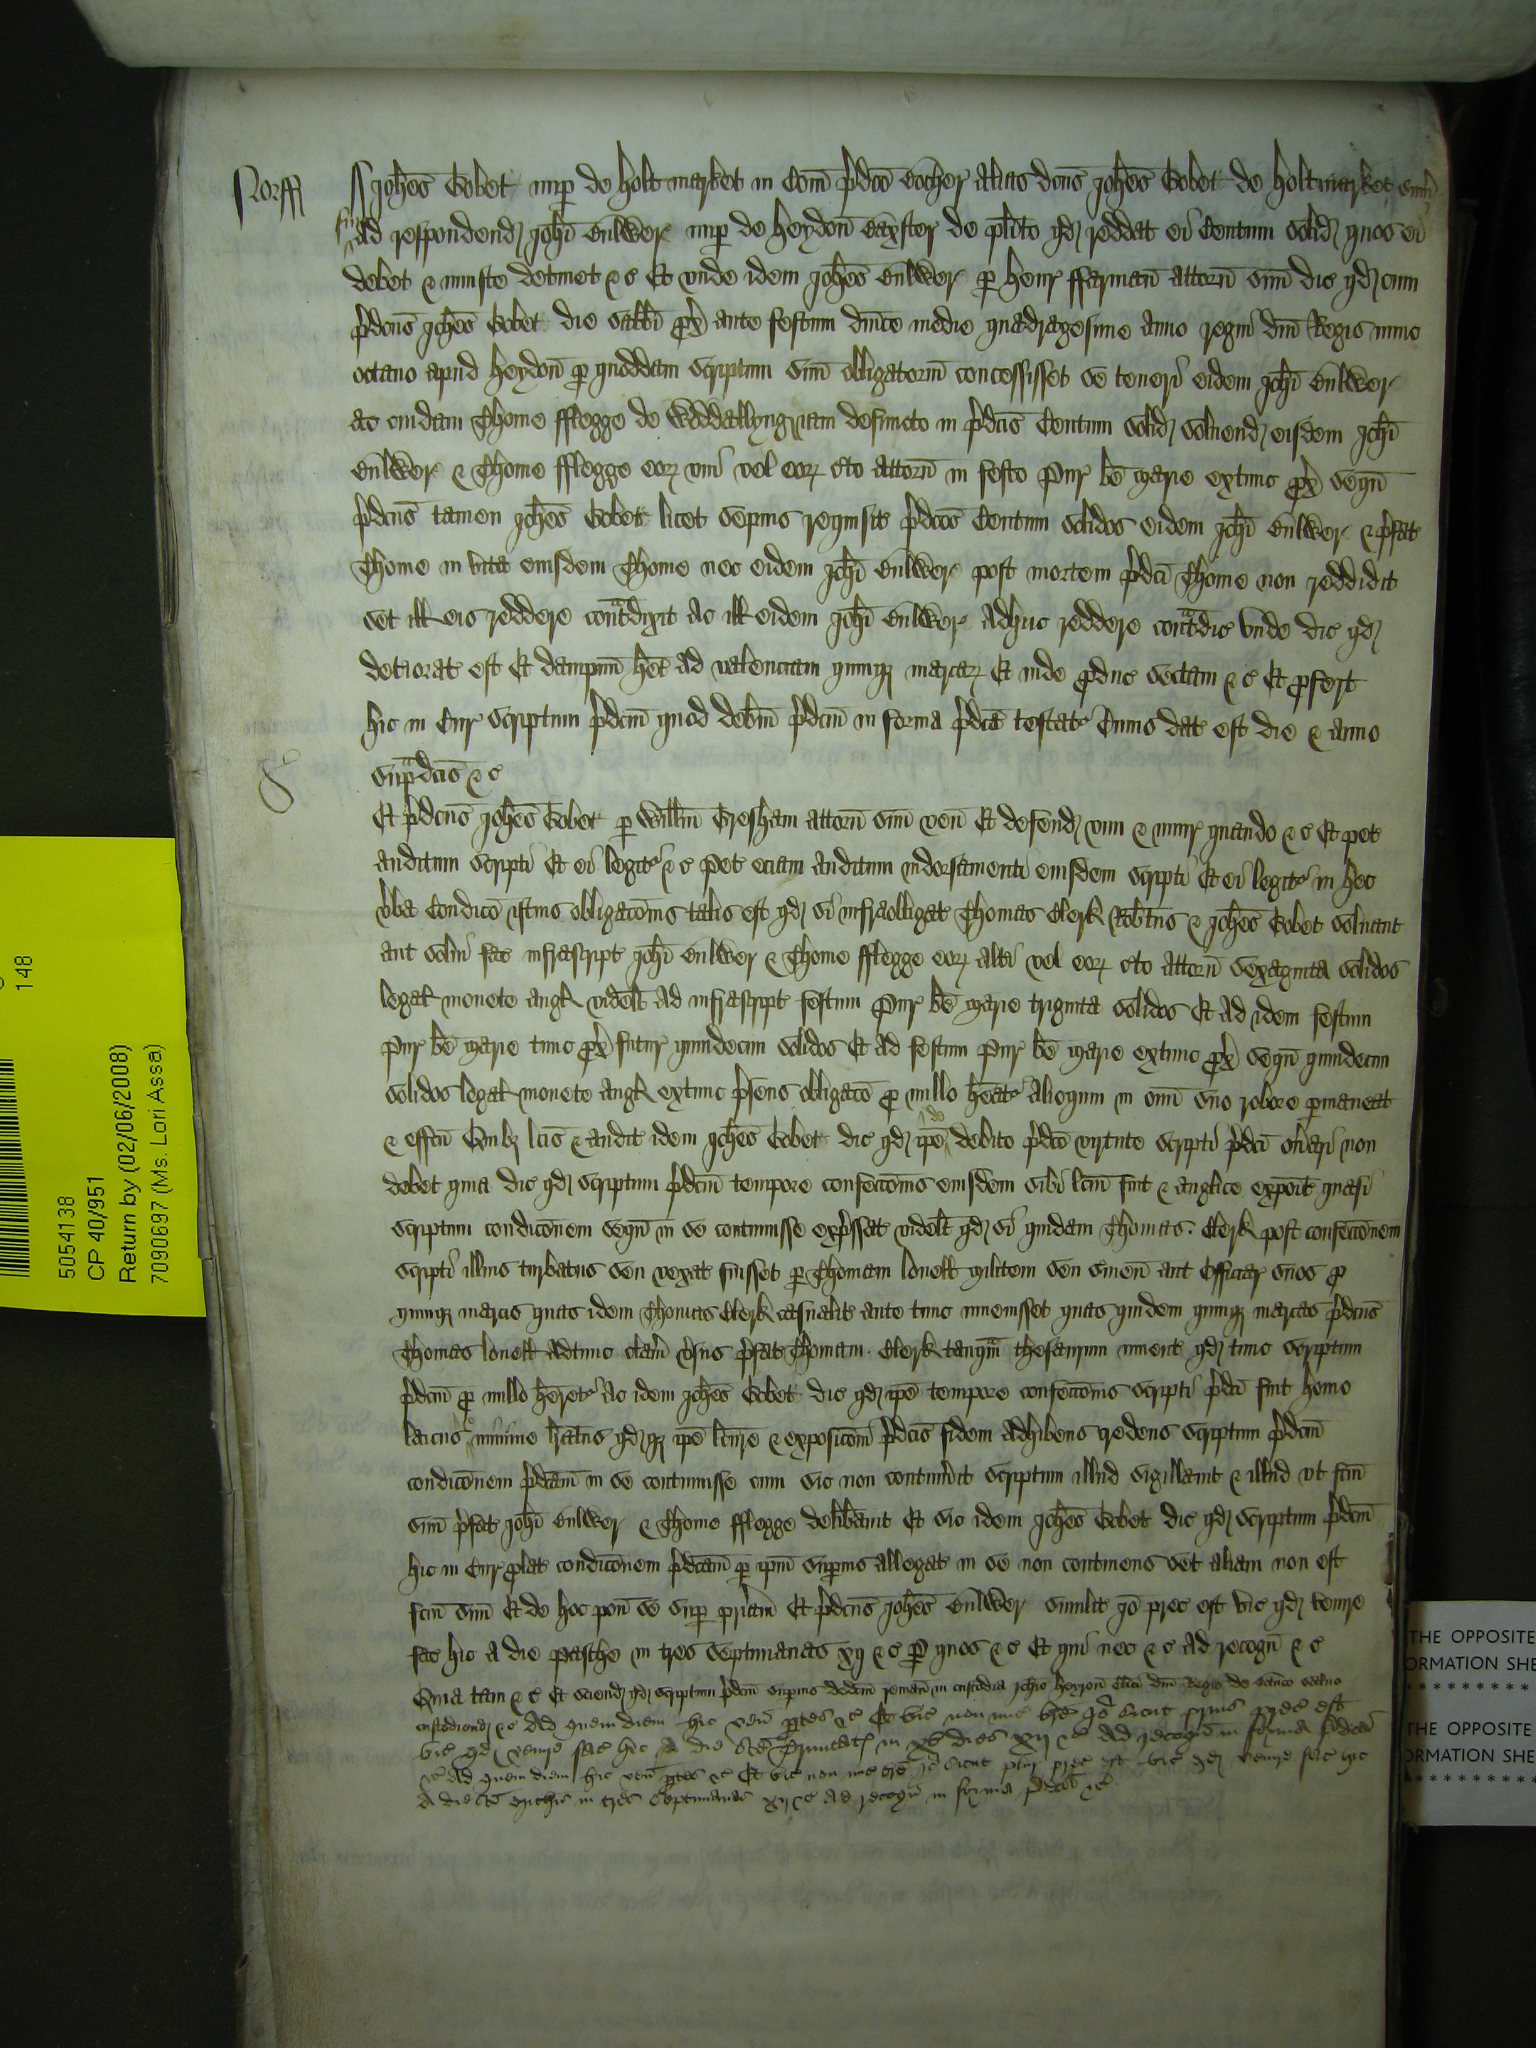 Norff
Joh̄es Gobet nup̄ de Holt market in Com̄ p̄dc̄o Bocher alias dc̄us Joh̄es Gobet de Holtmarket
sum̄
ad respondend Joh̄i Bulwer nup̄ de Heydon̄ Baxster de pl̄ito qd reddat ei Centum solid quos ei
debet & iniuste detinet &c Et unde idem Joh̄es Bulwer p̄ Henr ffarman̄ attorn̄ suū dic qd cum
p̄dc̄us Joh̄es Gobet die Sabb̄i prox̄ ante festum dn̄ice medie quadragesime anno regni dn̄i Regis nunc
octauo apud Heydon̄ p̄ quoddam scriptum suū obligatoriū concessisset se teneri eidem Joh̄i Bulwer
ac cuidam Thome fflegge de Wooddallyng iam defuncto in p̄dc̄is Centum solid soluend eisdem Joh̄i
Bulwer & Thome fflegge eor uni vel eor c̄to attorn̄ in festo Pur be Marie extunc prox̄ seqū
p̄dc̄us tamen Joh̄es Gobet licet sepius requisit p̄dc̄os Centum solidos eidem Joh̄i Bulwer & p̄fat
Thome in vita eiusdem Thome nec eidem Joh̄i Bulwer post mortem p̄dc̄i Thome non reddidit
set ill eis reddere contadixit ac ill eidem Joh̄i Bulwer adhuc reddere contadic unde dic qd
deteriorat est Et dampnū het ad valenciam quinq marcar Et inde produc sectam &c Et profert
hic in Cur scriptum p̄dc̄m quod debm̄ p̄dc̄m in forma p̄dc̄a testat Cuius dat est die & anno
sup̄adc̄is &c
Et p̄dc̄us Joh̄es Gobet p̄ Will̄m Gresham attorn̄ suū ven̄ Et defend vim & iniur quando &c Et pet
auditum scripti Et ei legit &c Pet eciam auditum indorsamenti eiusdem scripti Et ei legit in hec
v̄ba Condico istius obligac̄onis talis est qd si infraobligat Thomas Clerk Rob̄tus & Joh̄es Gobet soluant
aut solui fac infrascript Joh̄i Bulwer & Thome fflegge eor alt̄i vel eor c̄to attorn̄ sexaginta solidos
legal monete angl videlt ad infrascript festum Pur be Marie triginta solidos Et ad idem festum
Pur be Marie tunc prox̄ futur quindecim solidos Et ad festum Pur be Marie extunc prox̄ seqū quindecim
solidos legal monete angl extunc p̄sens obligac̄o pro nullo heat alioquin in om̄i suo robore p̄maneat
& effc̄u Quib lc̄is & audit idem Joh̄es Gobet dic qd ip̄e de debito p̄dc̄o virtute scripti p̄dc̄i on̄ari non
debet quia dic qd scriptum p̄dc̄m tempore confecc̄onis eiusdem sibi lc̄m fuit & anglice expoit quasi
scriptum condic̄onem seqū in se continuisse exp̄ssat videlt qd si quidam Thomas Clerk post confecc̄onem
scripti illius turbatus seu vexat fuisset p̄ Thomam Lovell militem seu s̄uien̄ aut Officiar suos pro
quinq marcis quas idem Thomas Clerk casualit ante tunc inuenisset quas quidem quinq marcas p̄dc̄us
Thomas Lovell adtunc clam̄ v̄sus p̄fat Thomam Clerk tanqam thesaurum inuent qd tunc scriptum
p̄dc̄m pro nullo heretur Ac idem Joh̄es Gobet dic qd ip̄e tempore confecc̄onis scripti p̄dc̄i fuit homo
laicus minime lr̄atus qdq ip̄e lc̄ure & exposic̄oni p̄dc̄is fidem adhibens credens scriptum p̄dc̄m
condic̄onem p̄dc̄am in se continuisse cum sic non continuit scriptum illud sigillauit & illud ut fc̄m
suū p̄fat Joh̄i Bulwer & Thome fflegge delib̄auit Et sic idem Joh̄es Gobet dic qd scriptum p̄dc̄m
hic in Cur plat condic̄onem p̄dc̄am p̄ ip̄m sup̄ius allegat in se non continens set aliam non est
fc̄m suū Et de hoc pon̄ se sup̄ pr̄iam Et p̄dc̄us Joh̄es Bulwer similit Io prec est vic qd venire
fac hic a die Pasche in tres septimanas xij &c P̄ quos &c Et qui nec &c ad recogn̄ &c
Quia tam &c Et sciend qd scriptum p̄dc̄m sup̄ius dedc̄m reman̄ in custodia Joh̄is Heyron̄ Clici dn̄i Regis de Banco saluo
custodiend &c Ad quem diem hic ven̄ p̄tes &c Et vic non mis bre Io sicut prius prec est
vic qd venire fac hic A die sc̄e Trinitat in xv dies xij &c Ad recogn̄ in forma p̄dc̄a
&c Ad quem diem hic ven̄ p̄tes &c Et vic non mis bre Io sicut plur prec est vic qd venire fac hic
A die sc̄i Mich̄is in tres septimanas xij &c Ad recogn̄ in forma p̄dc̄a &c
148
5054138
CP 40/951
Return by (02/06/2008)
7090697 (Ms. Lori Assa)
THE OPPOSITE
ORMATION SHE
* * * * * * * * *
THE OPPOSITE
ORMATION SHE
* * * * * * * * *